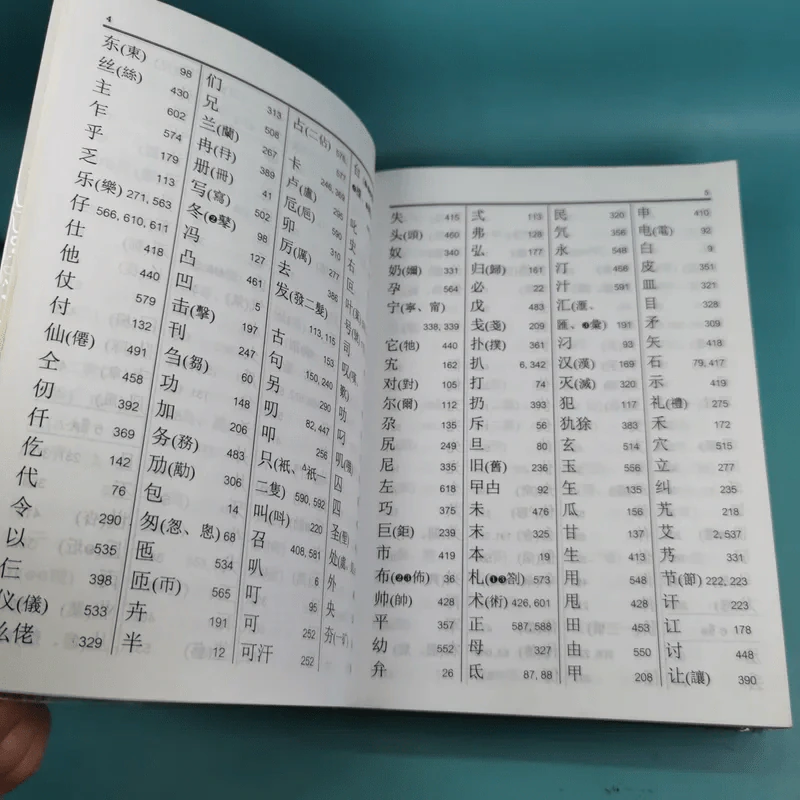 4
东(東) 98
丝(絲) 430
主 602
乍 574
乎 179
乏 113
乐(樂) 271, 563
仔 566, 610, 611
仕 418
他 440
仗 579
付 132
仙(僊) 491
仝 458
仞 392
仟 369
仡 142
代 76
令 290
以 535
仨 398
仪(儀) 533
佬 329
们 313
兄 508
兰(蘭) 267
冉(冄) 389
册(冊) 41
写(寫) 502
冬(❷鼕) 98
冯 127
凸 461
凹 5
击(擊) 197
刊 247
刍(芻) 60
功 148
加 206
务(務) 483
劢(勱) 306
包 14
匆(怱、悤) 68
匜 534
匝(帀) 565
卉 191
半 12
占(二佔) 576
577
卡 246, 369
卢(盧) 295
卮(巵) 590
卯 310
厉(厲) 277
去 386
发(發二髮)
113, 115
古 153
句 150, 240
另 290
叨 82, 447
叩 256
只(衹、^祇—
二隻) 590, 592
叫(呌) 220
召 408, 581
叭 6
叮 95
可 252
可汗 252
叱
史
右
叵
司
叻
叼
囚
四
外
央
5
失 415
头(頭) 460
奴 340
奶(嬭) 331
孕 564
宁(寧、甯)
338, 339
它(牠) 440
宄 162
对(對) 105
尔(爾) 112
尕 135
尻 249
尼 335
左 618
巧 375
巨(鉅) 239
市 419
布(❷❸佈) 36
帅(帥) 428
平 357
幼 552
弁 26
弍 113
弗 128
弘 177
归(歸) 161
必 22
戊 483
戋(戔) 209
扑(撲) 361
扒 6, 342
打 74
扔 393
斥 56
旦 80
旧(舊) 236
曱甴 92
未 476
末 325
本 19
札(❶❸劄) 573
术(術) 426, 601
正 587, 588
母 327
氐 87, 88
民 320
氕 356
永 548
汀 457
汁 591
汇(滙、
匯、❸彙) 191
汈 93
汉(漢) 169
灭(滅) 320
犯 117
犰狳 383
玄 514
玉 556
玍 135
瓜 159
甘 137
生 413
用 548
甩 428
田 453
由 550
甲 208
申 410
电(電) 92
白 9
皮 351
皿 321
目 328
矛 309
矢 418
石 79, 417
示 419
礼(禮) 275
禾 172
穴 515
立 277
纠 235
艽 218
艾 2, 537
艿 331
节(節) 222, 223
讦 223
讧 178
讨 448
让(讓) 390